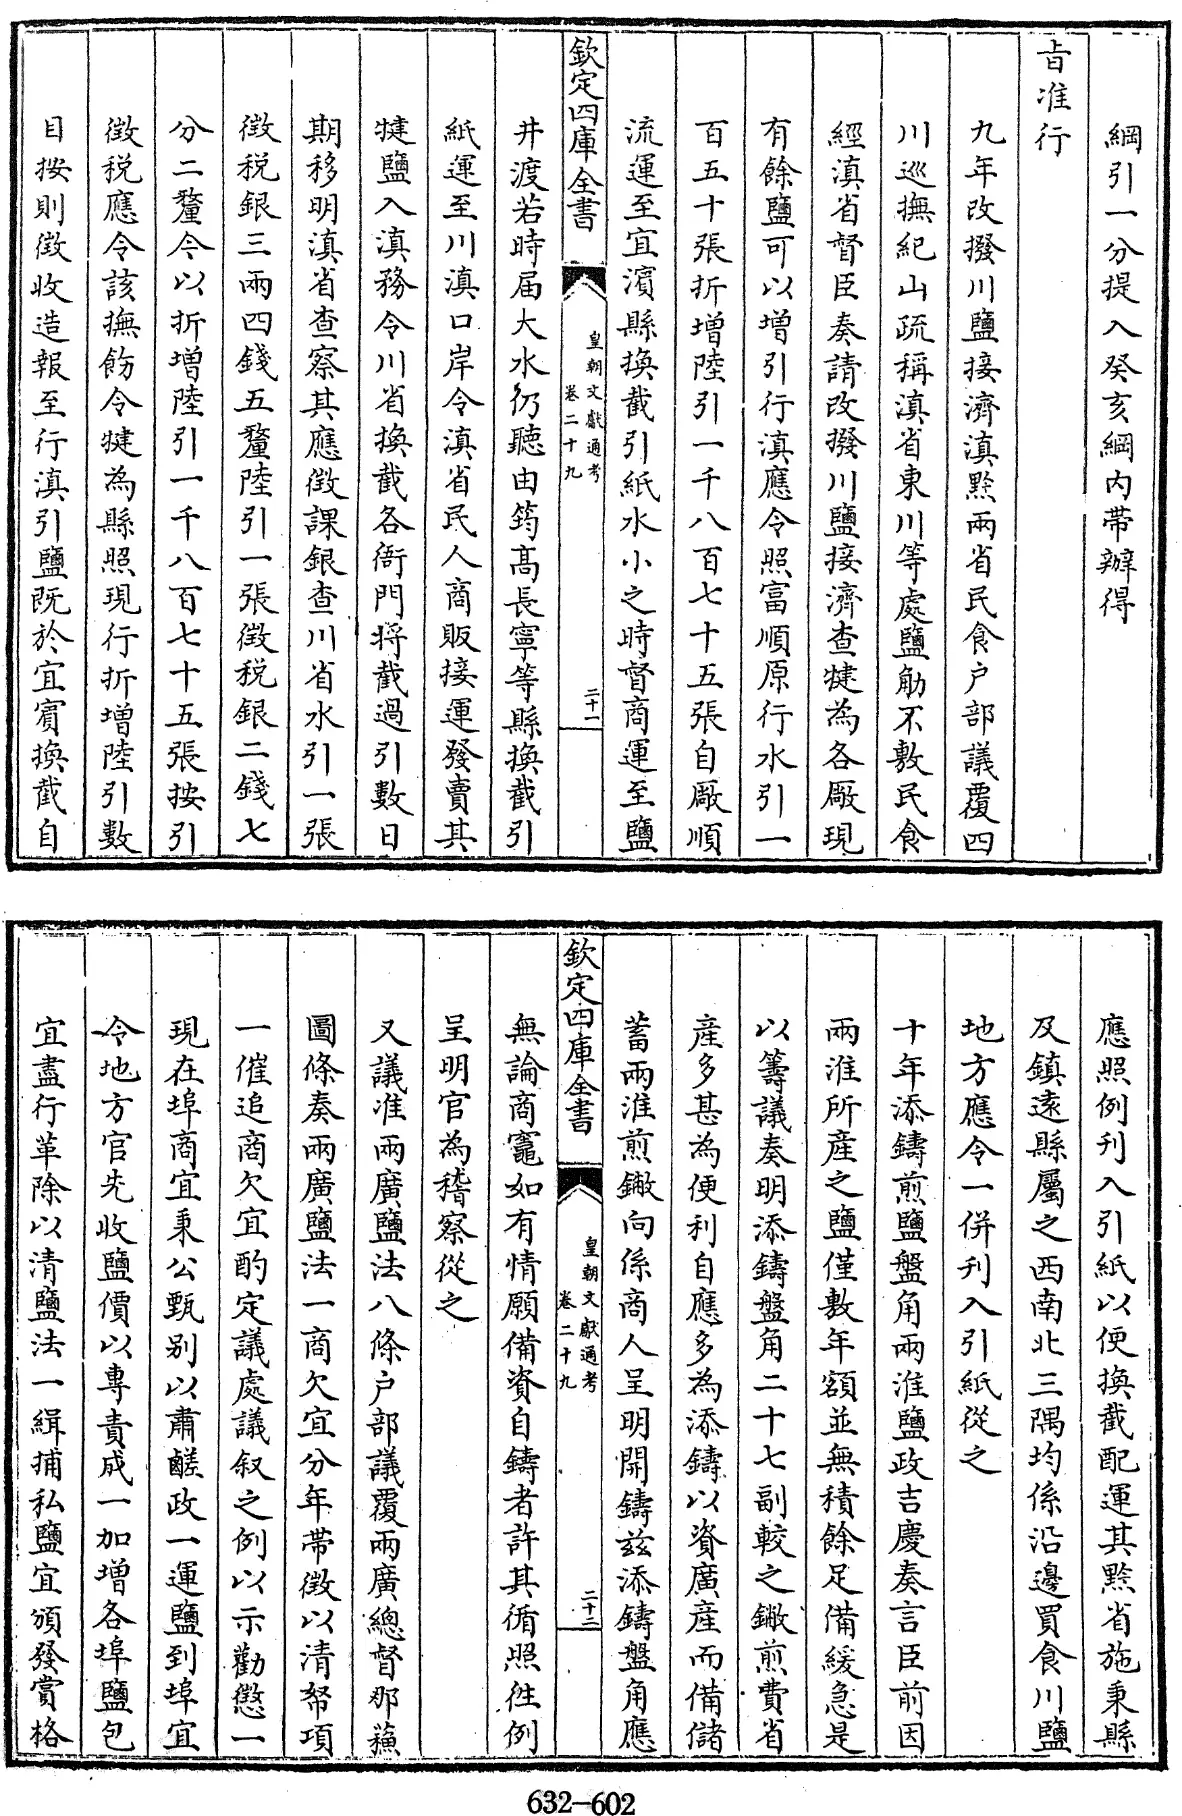 綱引一分提入癸亥綱內帶辦得
㫖准行
九年改撥川鹽接濟滇黔兩省民食户部議覆四
川巡撫紀山疏稱滇省東川等處鹽觔不敷民食
經滇省督臣奏請改撥川鹽接濟查犍為各厰現
有餘鹽可以增引行滇應令照富順原行水引一
百五十張折增陸引一千八百七十五張自厰順
流運至宜濱縣換截引紙水小之時督商運至鹽
欽定四庫全書
皇朝文獻通考
卷二十九
二十一
井渡若時届大水仍聽由筠髙長寧等縣換截引
紙運至川滇口岸令滇省民人商販接運發賣其
犍鹽入滇務令川省換截各衙門將截過引數日
期移明滇省查察其應徴課銀查川省水引一張
徴税銀三兩四錢五釐陸引一張徴税銀二錢七
分二釐今以折增陸引一千八百七十五張按引
徴税應令該撫飭令犍為縣照現行折增陸引數
目按則徴收造報至行滇引鹽既於宜賓換截自
應照例刋入引紙以便換截配運其黔省施秉縣
及鎮遠縣屬之西南北三隅均係沿邊買食川鹽
地方應令一併刋入引紙從之
十年添鑄煎鹽盤角兩淮鹽政吉慶奏言臣前因
兩淮所産之鹽僅敷年額並無積餘足備緩急是
以籌議奏明添鑄盤角二十七副較之鐝煎費省
産多甚為便利自應多為添鑄以資廣産而備儲
蓄兩淮煎鐝向係商人呈明開鑄兹添鑄盤角應
欽定四庫全書
皇朝文獻通考
卷二十九
二十二
無論商竈如有情願備資自鑄者許其循照徃例
呈明官為稽察從之
又議准兩廣鹽法八條户部議覆兩廣總督那蘓
圖條奏兩廣鹽法一商欠宜分年帶徴以清帑項
一催追商欠宜酌定議處議叙之例以示勸懲一
現在埠商宜秉公甄别以肅鹺政一運鹽到埠宜
令地方官先收鹽價以專責成一加增各埠鹽包
宜盡行革除以清鹽法一緝捕私鹽宜頒發賞格
632-602